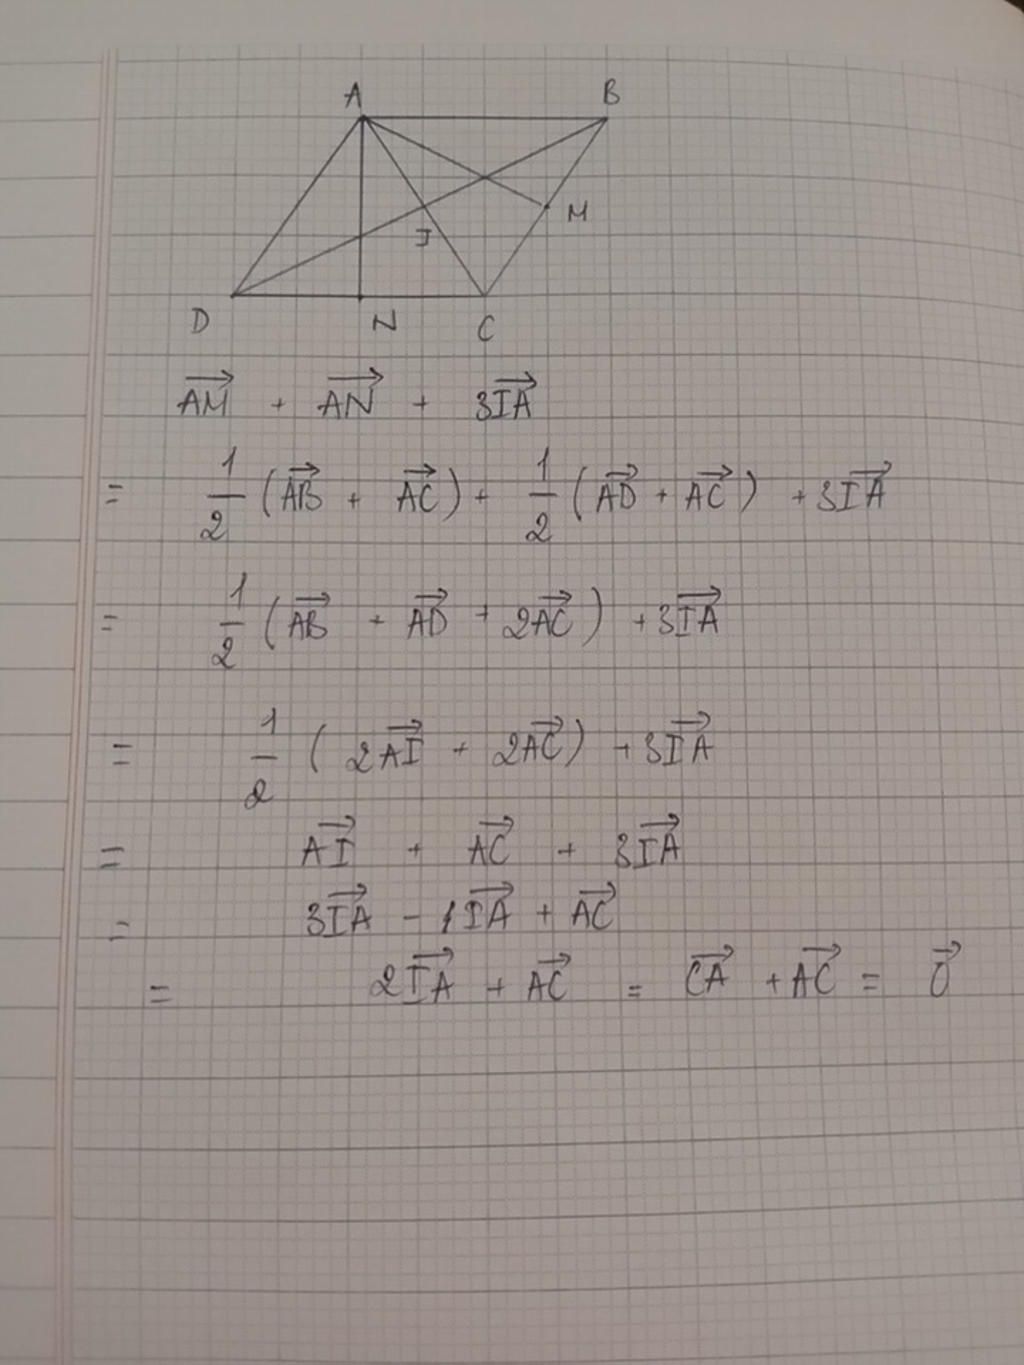 A B
I M
D N C
$\overrightarrow{AM} + \overrightarrow{AN} + 3\overrightarrow{IA}$
$= \frac{1}{2}(\overrightarrow{AB} + \overrightarrow{AC}) + \frac{1}{2}(\overrightarrow{AD} + \overrightarrow{AC}) + 3\overrightarrow{IA}$
$= \frac{1}{2}(\overrightarrow{AB} + \overrightarrow{AD} + 2\overrightarrow{AC}) + 3\overrightarrow{IA}$
$= \frac{1}{2}(2\overrightarrow{AI} + 2\overrightarrow{AC}) + 3\overrightarrow{IA}$
$= \overrightarrow{AI} + \overrightarrow{AC} + 3\overrightarrow{IA}$
$= 3\overrightarrow{IA} - 1\overrightarrow{IA} + \overrightarrow{AC}$
$= 2\overrightarrow{IA} + \overrightarrow{AC} = \overrightarrow{CA} + \overrightarrow{AC} = \overrightarrow{0}$